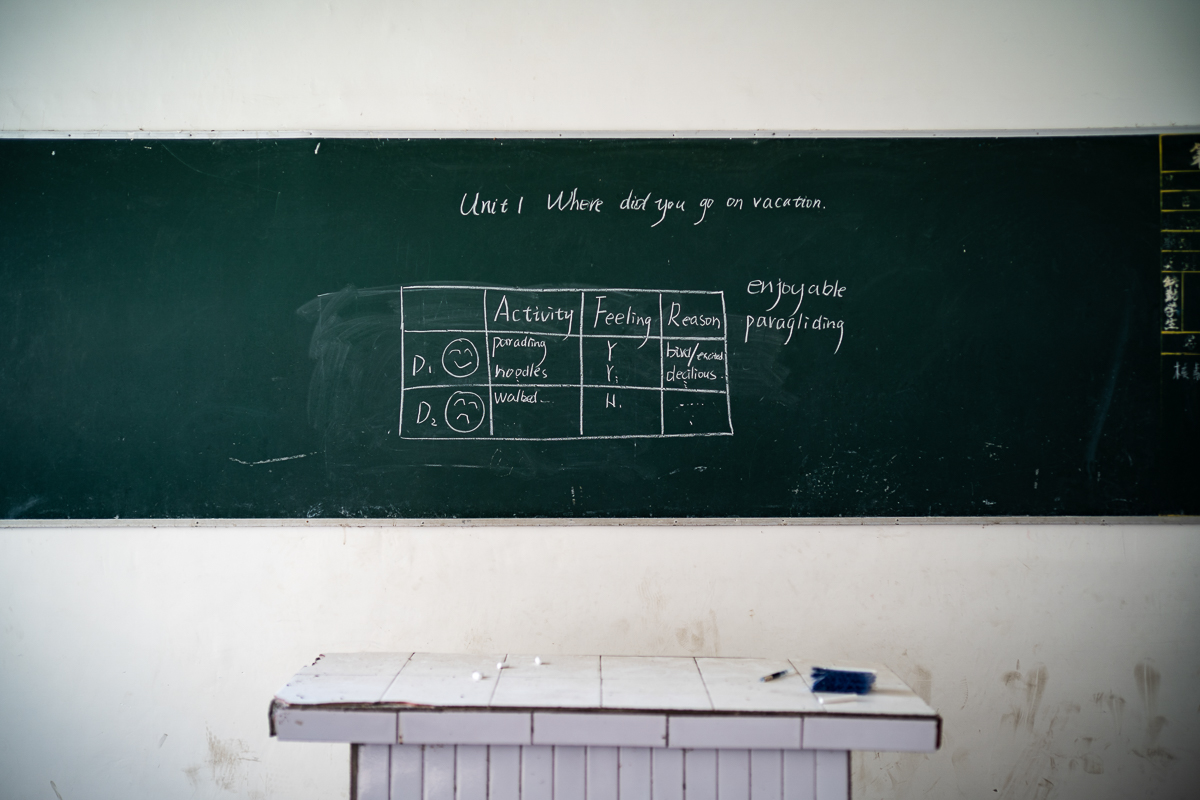 Unit 1 Where did you go on vacation.
enjoyable
paragliding
Activity Feeling Reason
D1 parading Y bird/excited
noodles Y: decilious..
D2 walked... H. ......